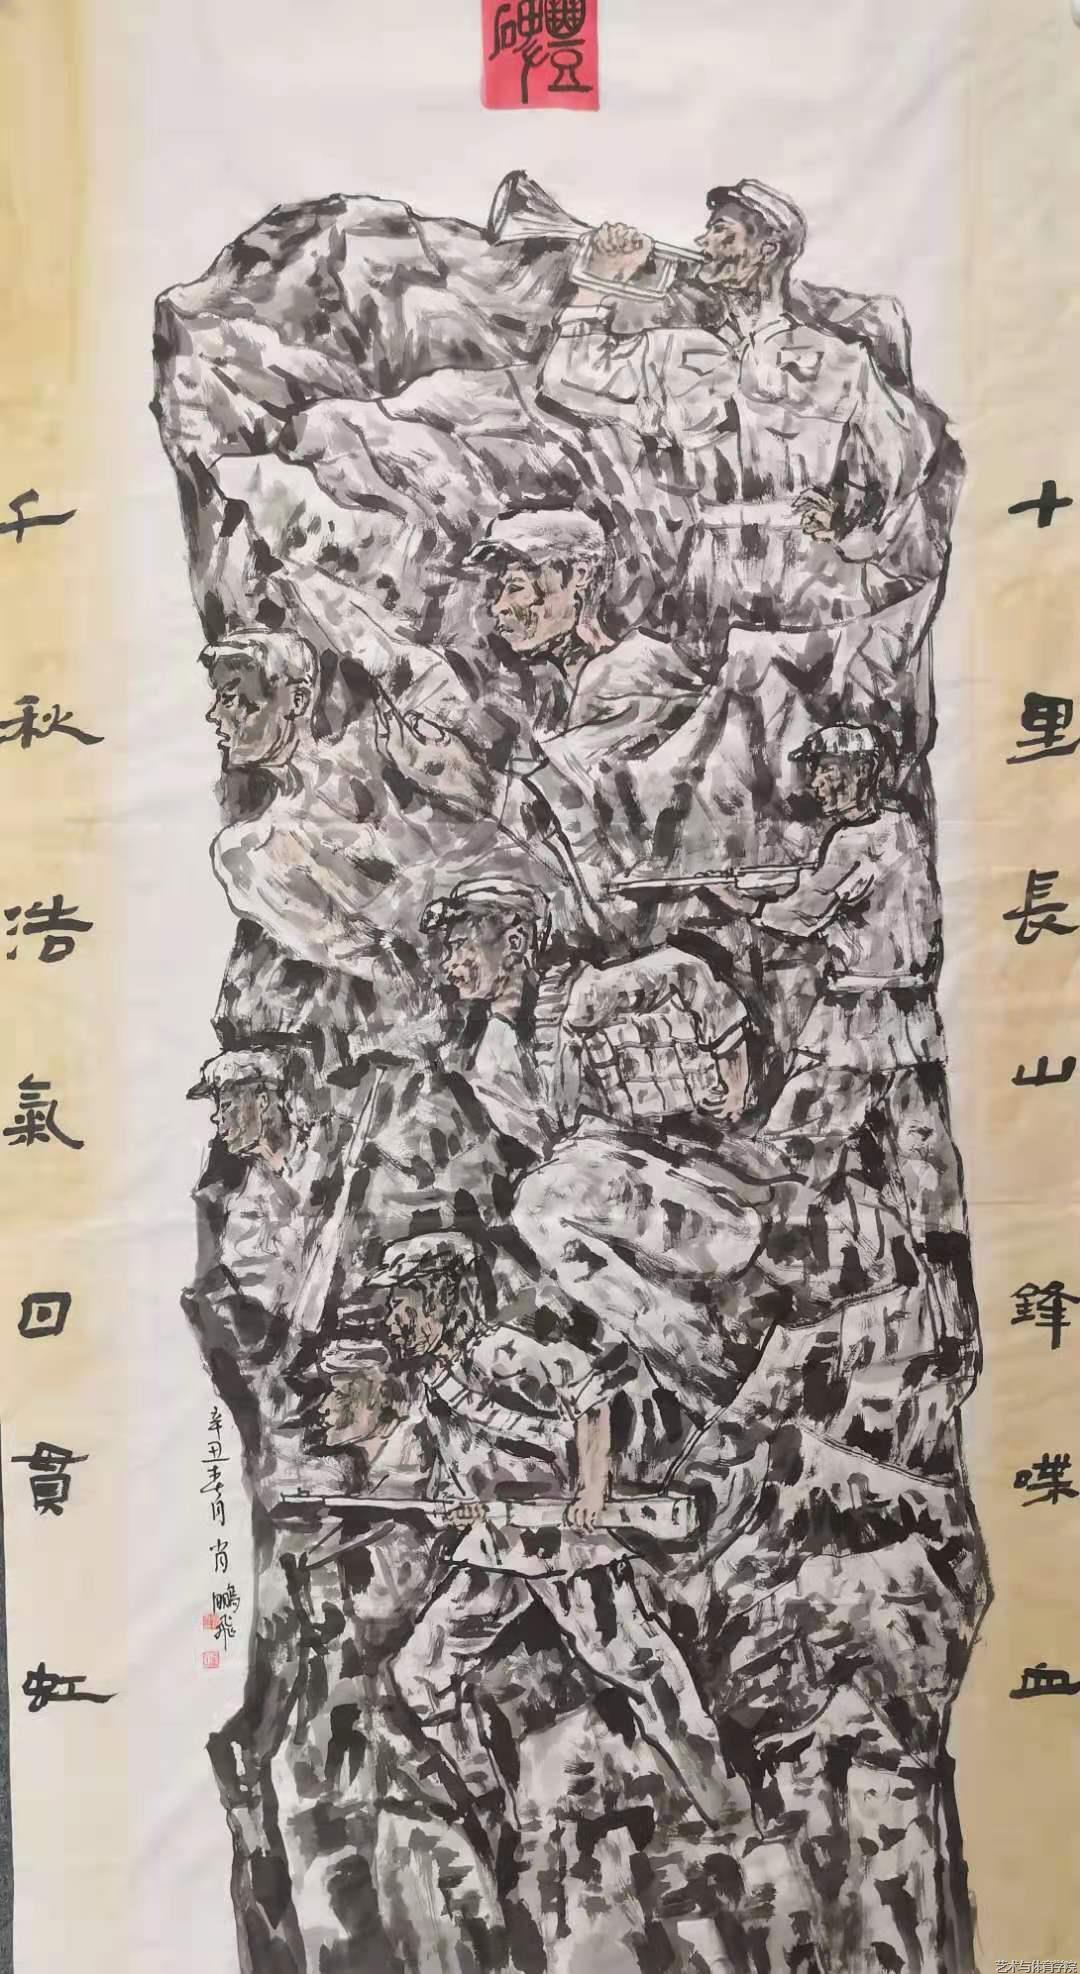 豐碑
十里長山鋒喋血
千秋浩氣回貫虹
辛丑春月 肖鵬飛
艺术与体育学院